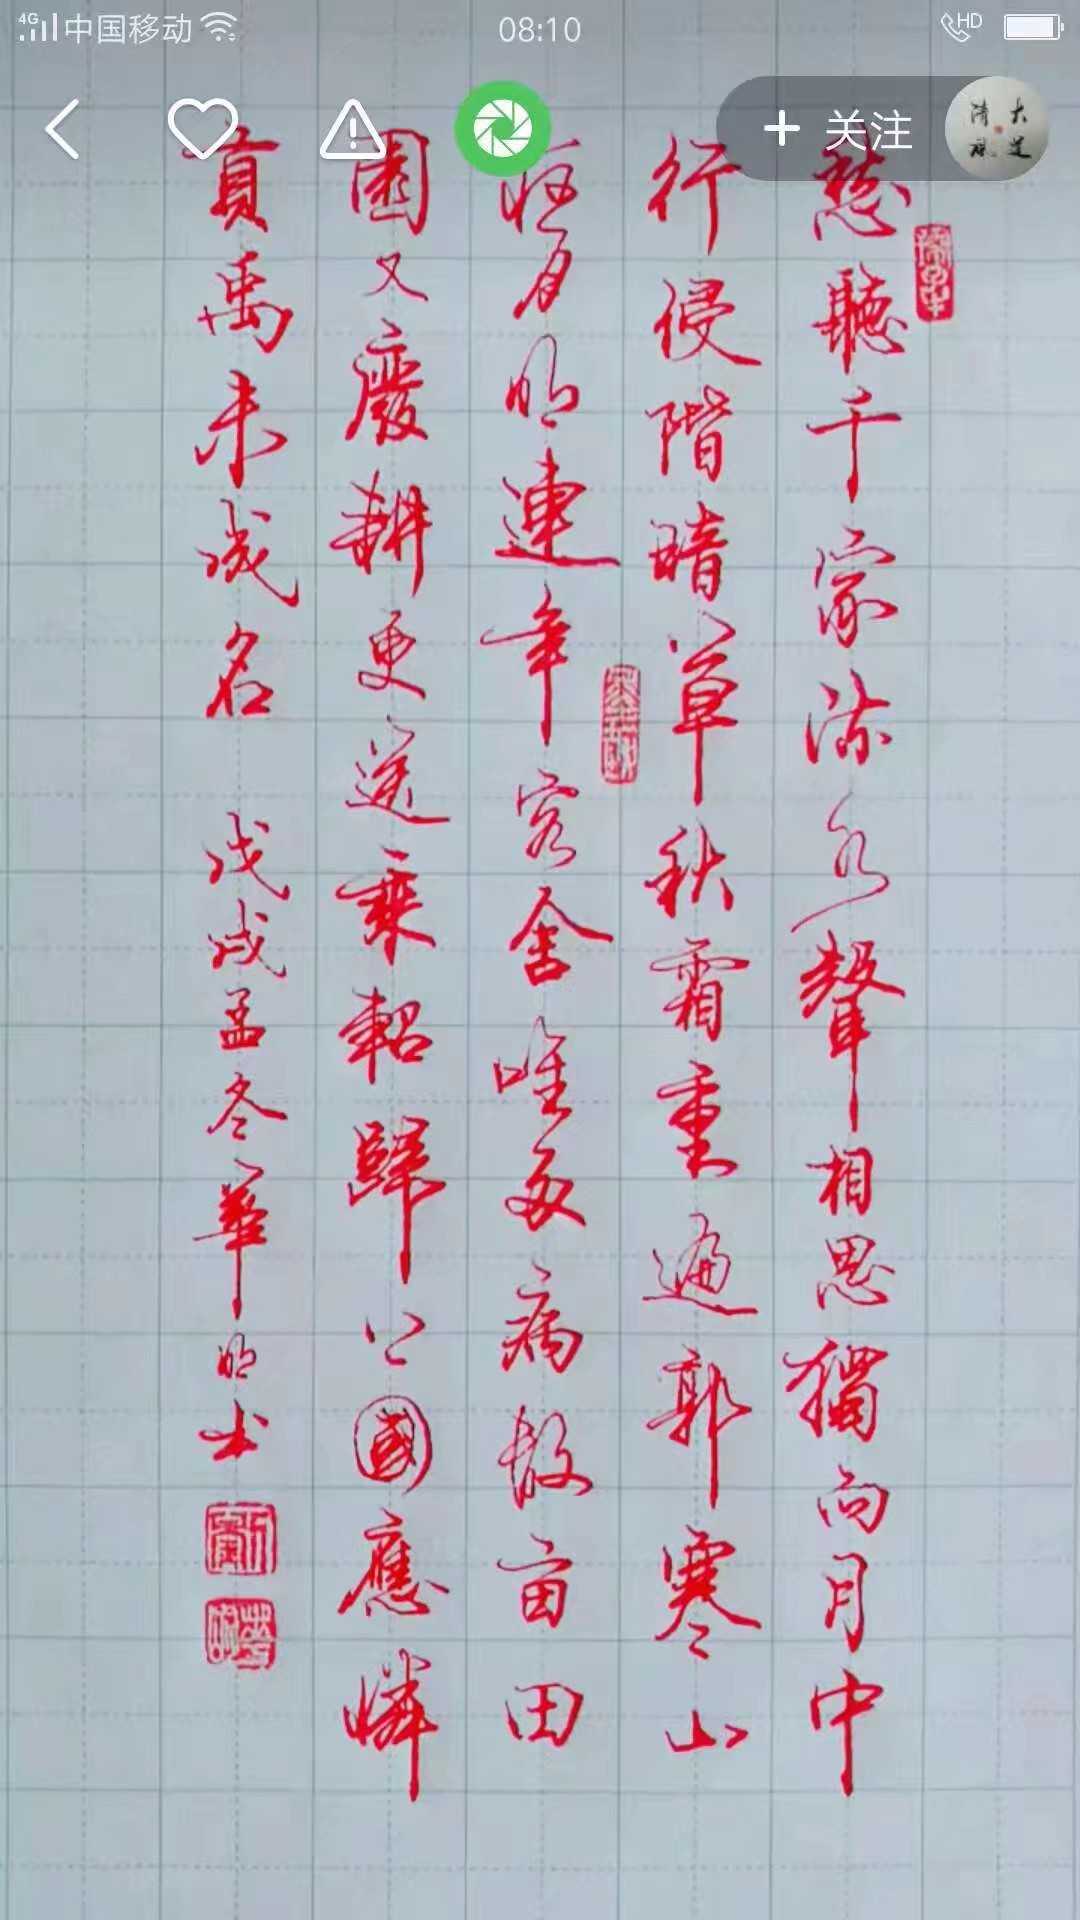 4G 中国移动 08:10 HD
+ 关注
愁聽千家流水聲相思獨向月中
行侵階暗草秋霜重遍郭寒山
夜月明連年客舍唯多病數亩田
園又廢耕更送乘軺歸上國應憐
貢禹未成名 戊戌孟冬華明书